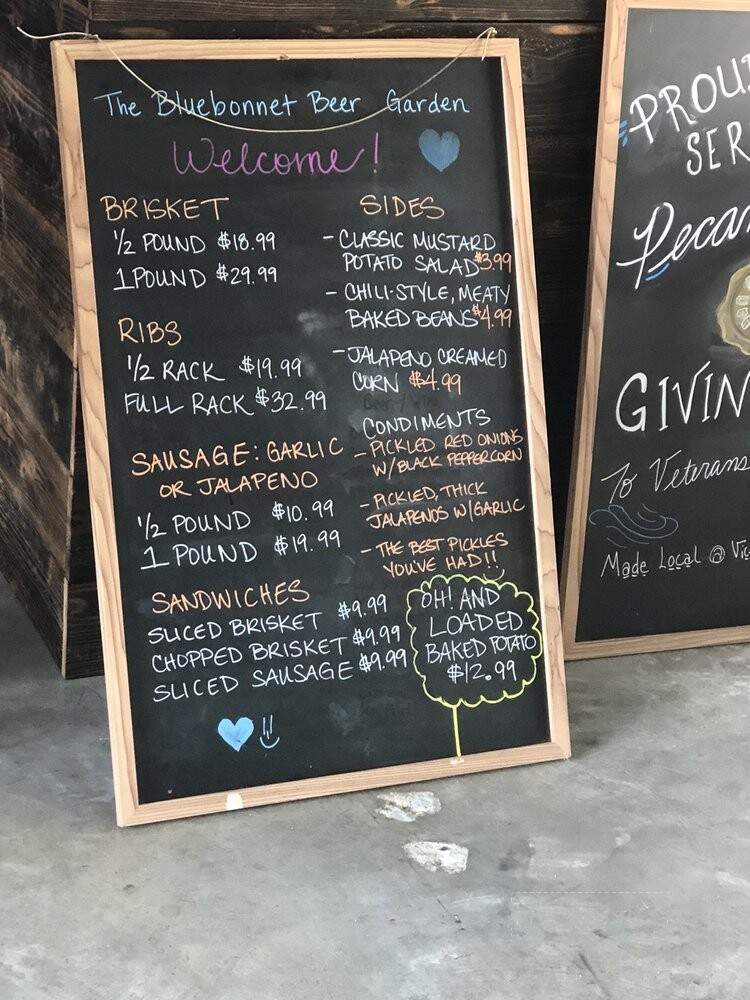 The Bluebonnet Beer Garden
Welcome!
BRISKET
1/2 POUND $18.99
1 POUND $29.99
RIBS
1/2 RACK $19.99
FULL RACK $32.99
SAUSAGE: GARLIC
OR JALAPENO
1/2 POUND $10.99
1 POUND $19.99
SANDWICHES
SLICED BRISKET $9.99
CHOPPED BRISKET $9.99
SLICED SAUSAGE $9.99
SIDES
- CLASSIC MUSTARD
POTATO SALAD $3.99
- CHILI-STYLE, MEATY
BAKED BEANS $4.99
- JALAPENO CREAMED
CORN $4.99
CONDIMENTS
- PICKLED RED ONIONS
W/BLACK PEPPERCORN
- PICKLED, THICK
JALAPENOS W/GARLIC
- THE BEST PICKLES
YOU'VE HAD!!
OH! AND
LOADED
BAKED POTATO
$12.99
PROU
SER
Pecan
GIVIN
To Veterans
Made Local @